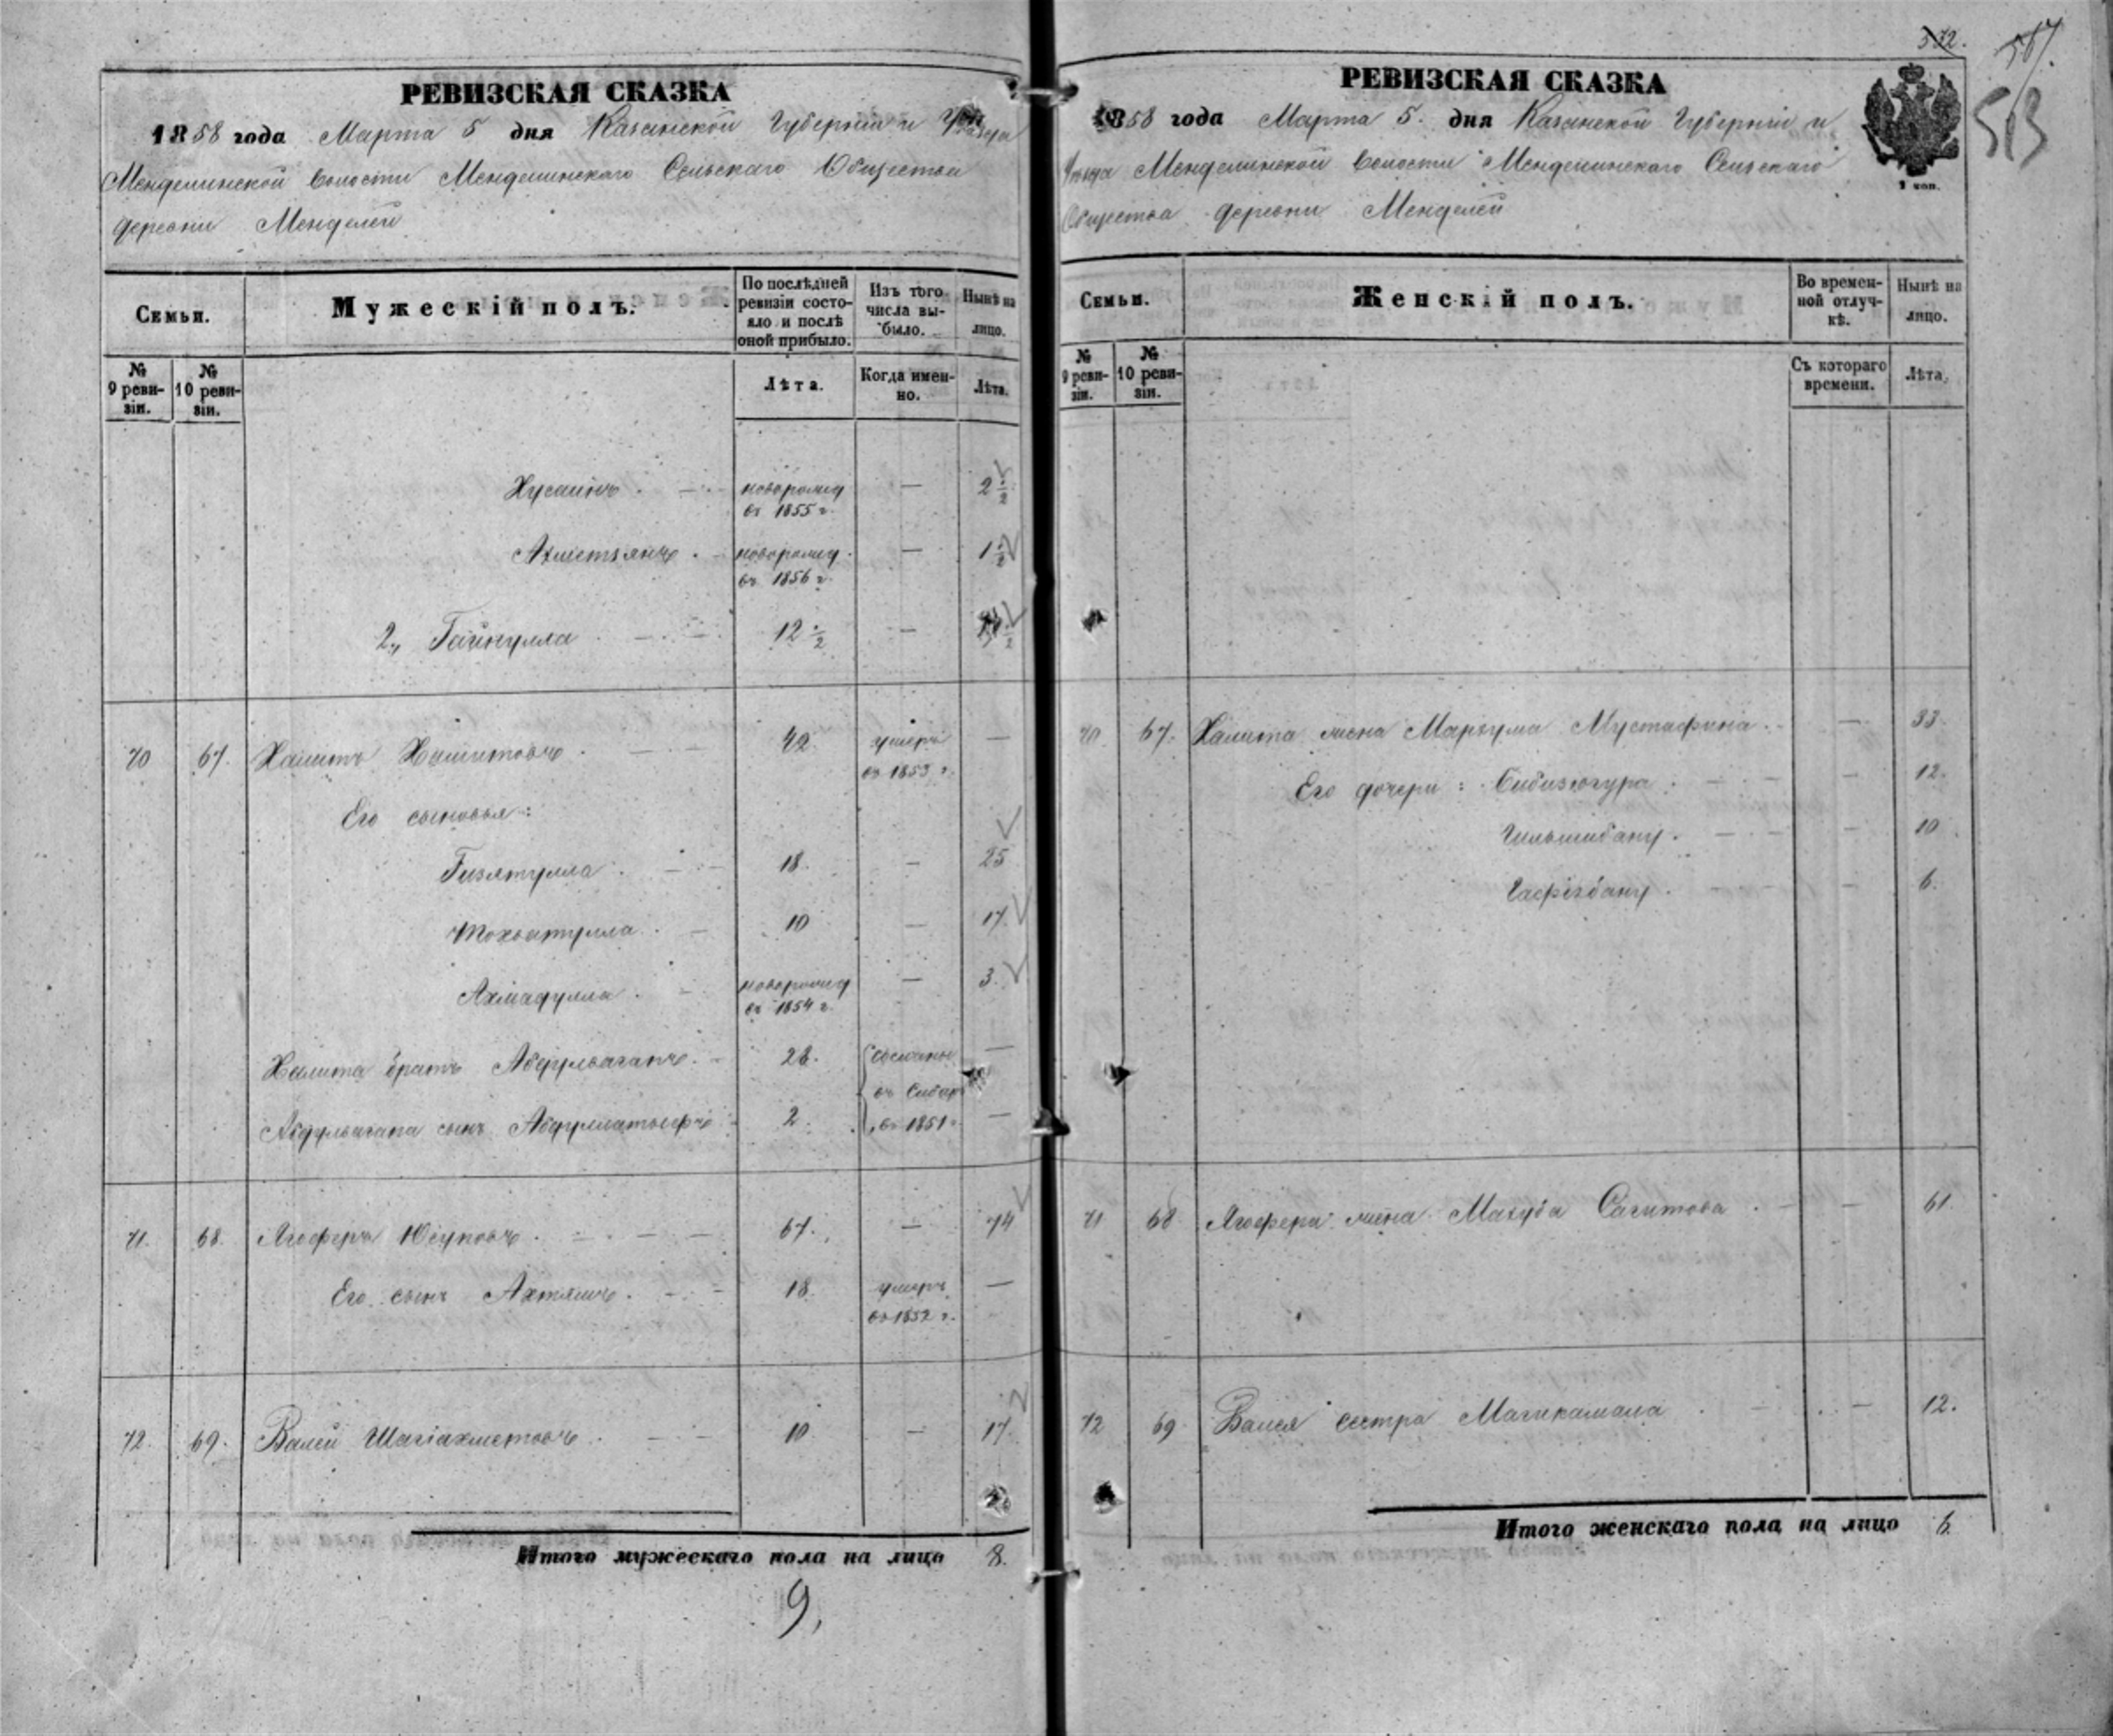 532.
567.
513
РЕВИЗСКАЯ СКАЗКА
1858 года Марта 5 дня Казанской Губернии и Уезда
Менделинской Волости Менделинскаго Сельскаго Общества
деревни Менделей
Семьи.
Мужескій полъ.
По послѣдней ревизіи состояло и послѣ оной прибыло.
Изъ того числа выбыло.
Нынѣ на лицо.
№ 9 ревизіи.
№ 10 ревизіи.
Лѣта.
Когда именно.
Лѣта.
Хусаинъ новорожд въ 1855 г. — 2 1/2
Ахметзянъ новорожд. въ 1856 г. — 1 1/2
2, Гайнулла 12 1/2 —
70 67. Халитъ Хамитовъ 42 умеръ въ 1853 г. —
Его сыновья:
Гизятулла 18. — 25
Тохватулла 10 — 17.
Ахмадулла новорожд въ 1854 г. — 3.
Халита братъ Абдулваганъ 28. сосланы —
въ Сибирь
Абдулвагапа сынъ Абдуллатыфъ 2. въ 1851 г —
71. 68. Агоферъ Юсуповъ 67. — 74
Его сынъ Ахтямъ 18. умеръ въ 1852 г. —
72. 69. Валей Шагіахметовъ 10. — 17.
Итого мужескаго пола на лицо 8.
9,
РЕВИЗСКАЯ СКАЗКА
1858 года Марта 5. дня Казанской Губерніи и
Уезда Менделинской Волости Менделинскаго Сельскаго
Общества деревни Менделей
1 коп.
Семьи.
Женскій полъ.
Во временной отлучкѣ.
Нынѣ на лицо.
№ 9 ревизіи.
№ 10 ревизіи.
Съ котораго времени.
Лѣта.
70 67. Халита жена Мархума Мустафина — 33
Его дочери: Бибизюгура — 12.
Гильмибану — 10
6.
71 68 Агофера жена Махуба Сагитова — 61.
72 69 Валея сестра Магикамала — 12.
Итого женскаго пола на лицо 6.